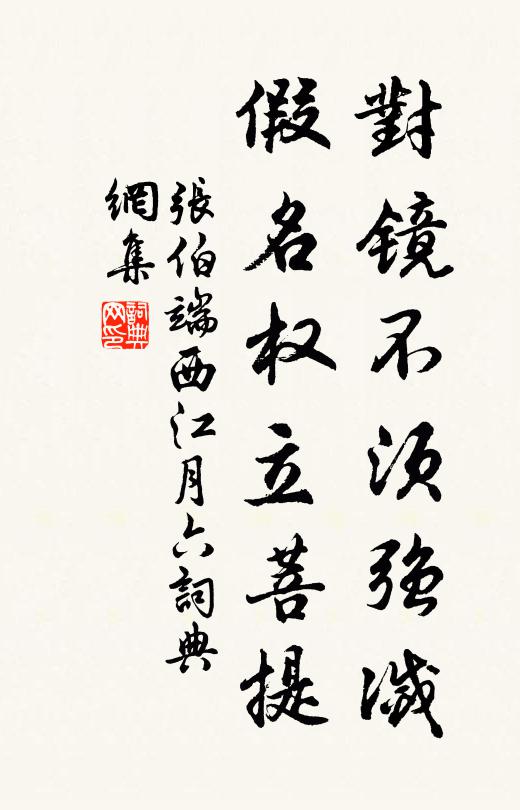 對鏡不須強滅
假名权立菩提
張伯端西江月六詞典
網集
詞典
网印